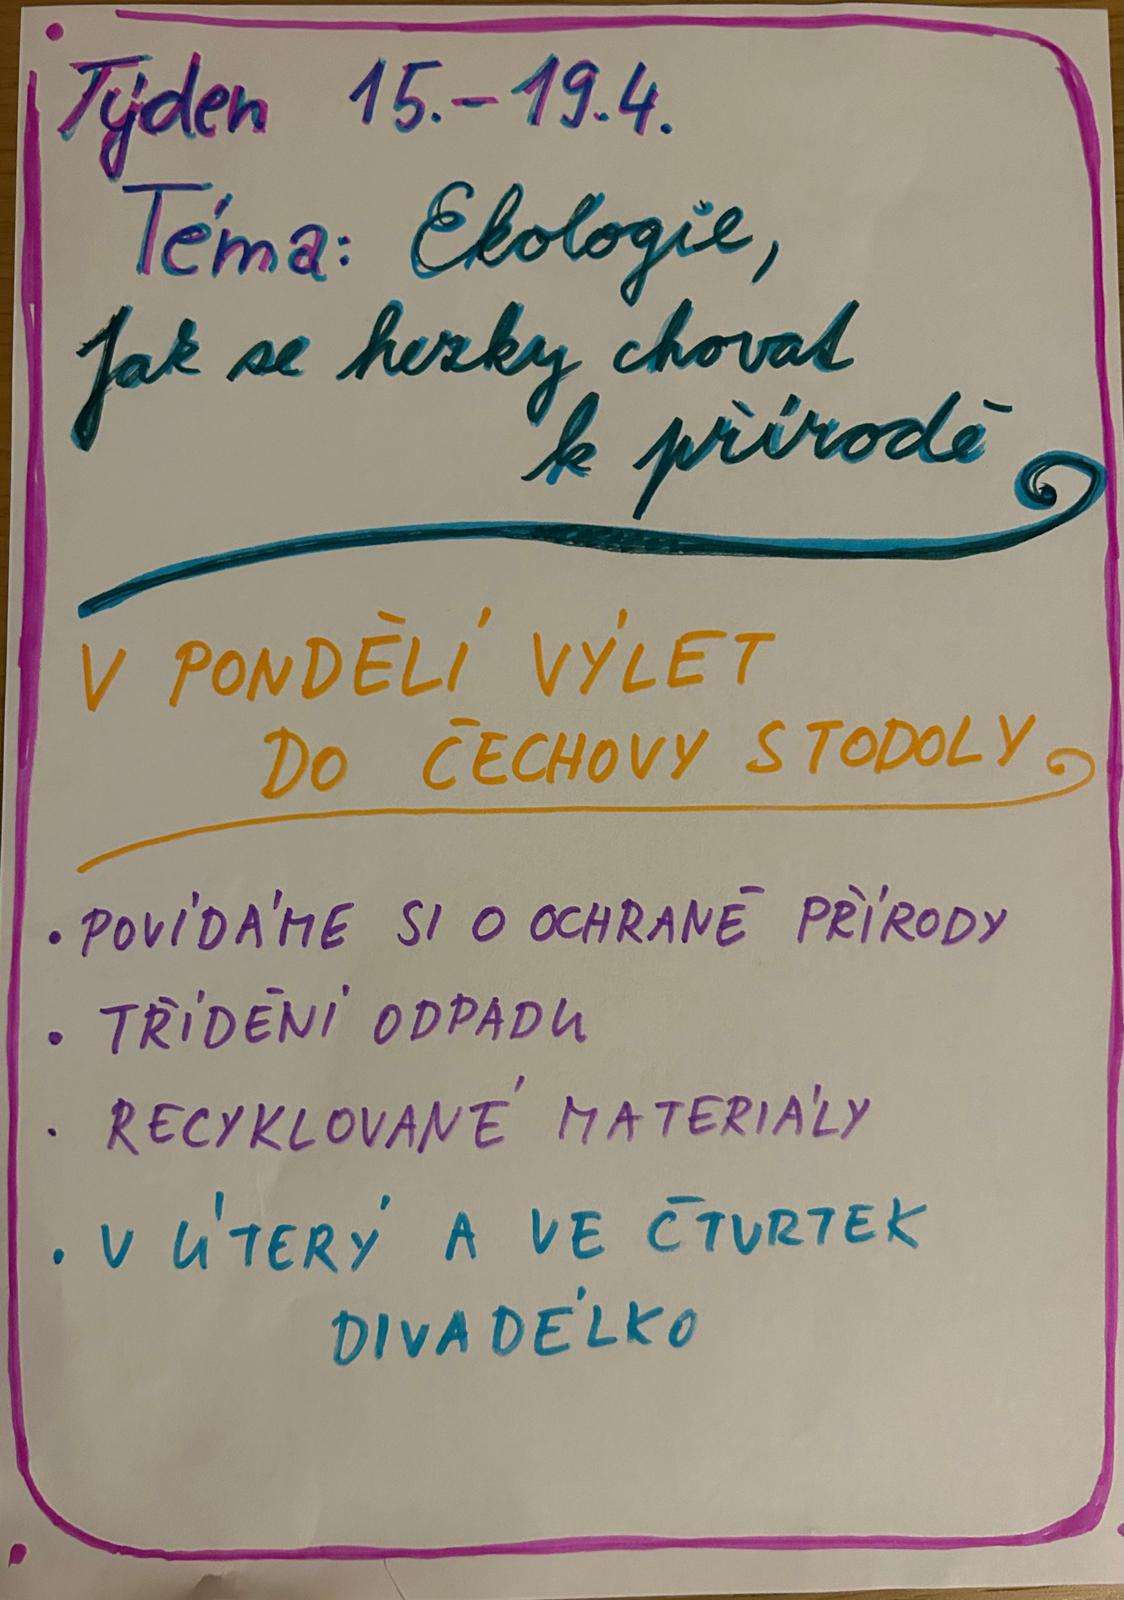 Týden 15.-19.4.
Téma: Ekologie,
Jak se hezky chovat
k přírodě
V PONDĚLÍ VÝLET
DO ČECHOVY STODOLY
• POVÍDÁME SI O OCHRANĚ PŘÍRODY
• TŘÍDĚNÍ ODPADU
• RECYKLOVANÉ MATERIÁLY
• V ÚTERÝ A VE ČTVRTEK
DIVADÉLKO